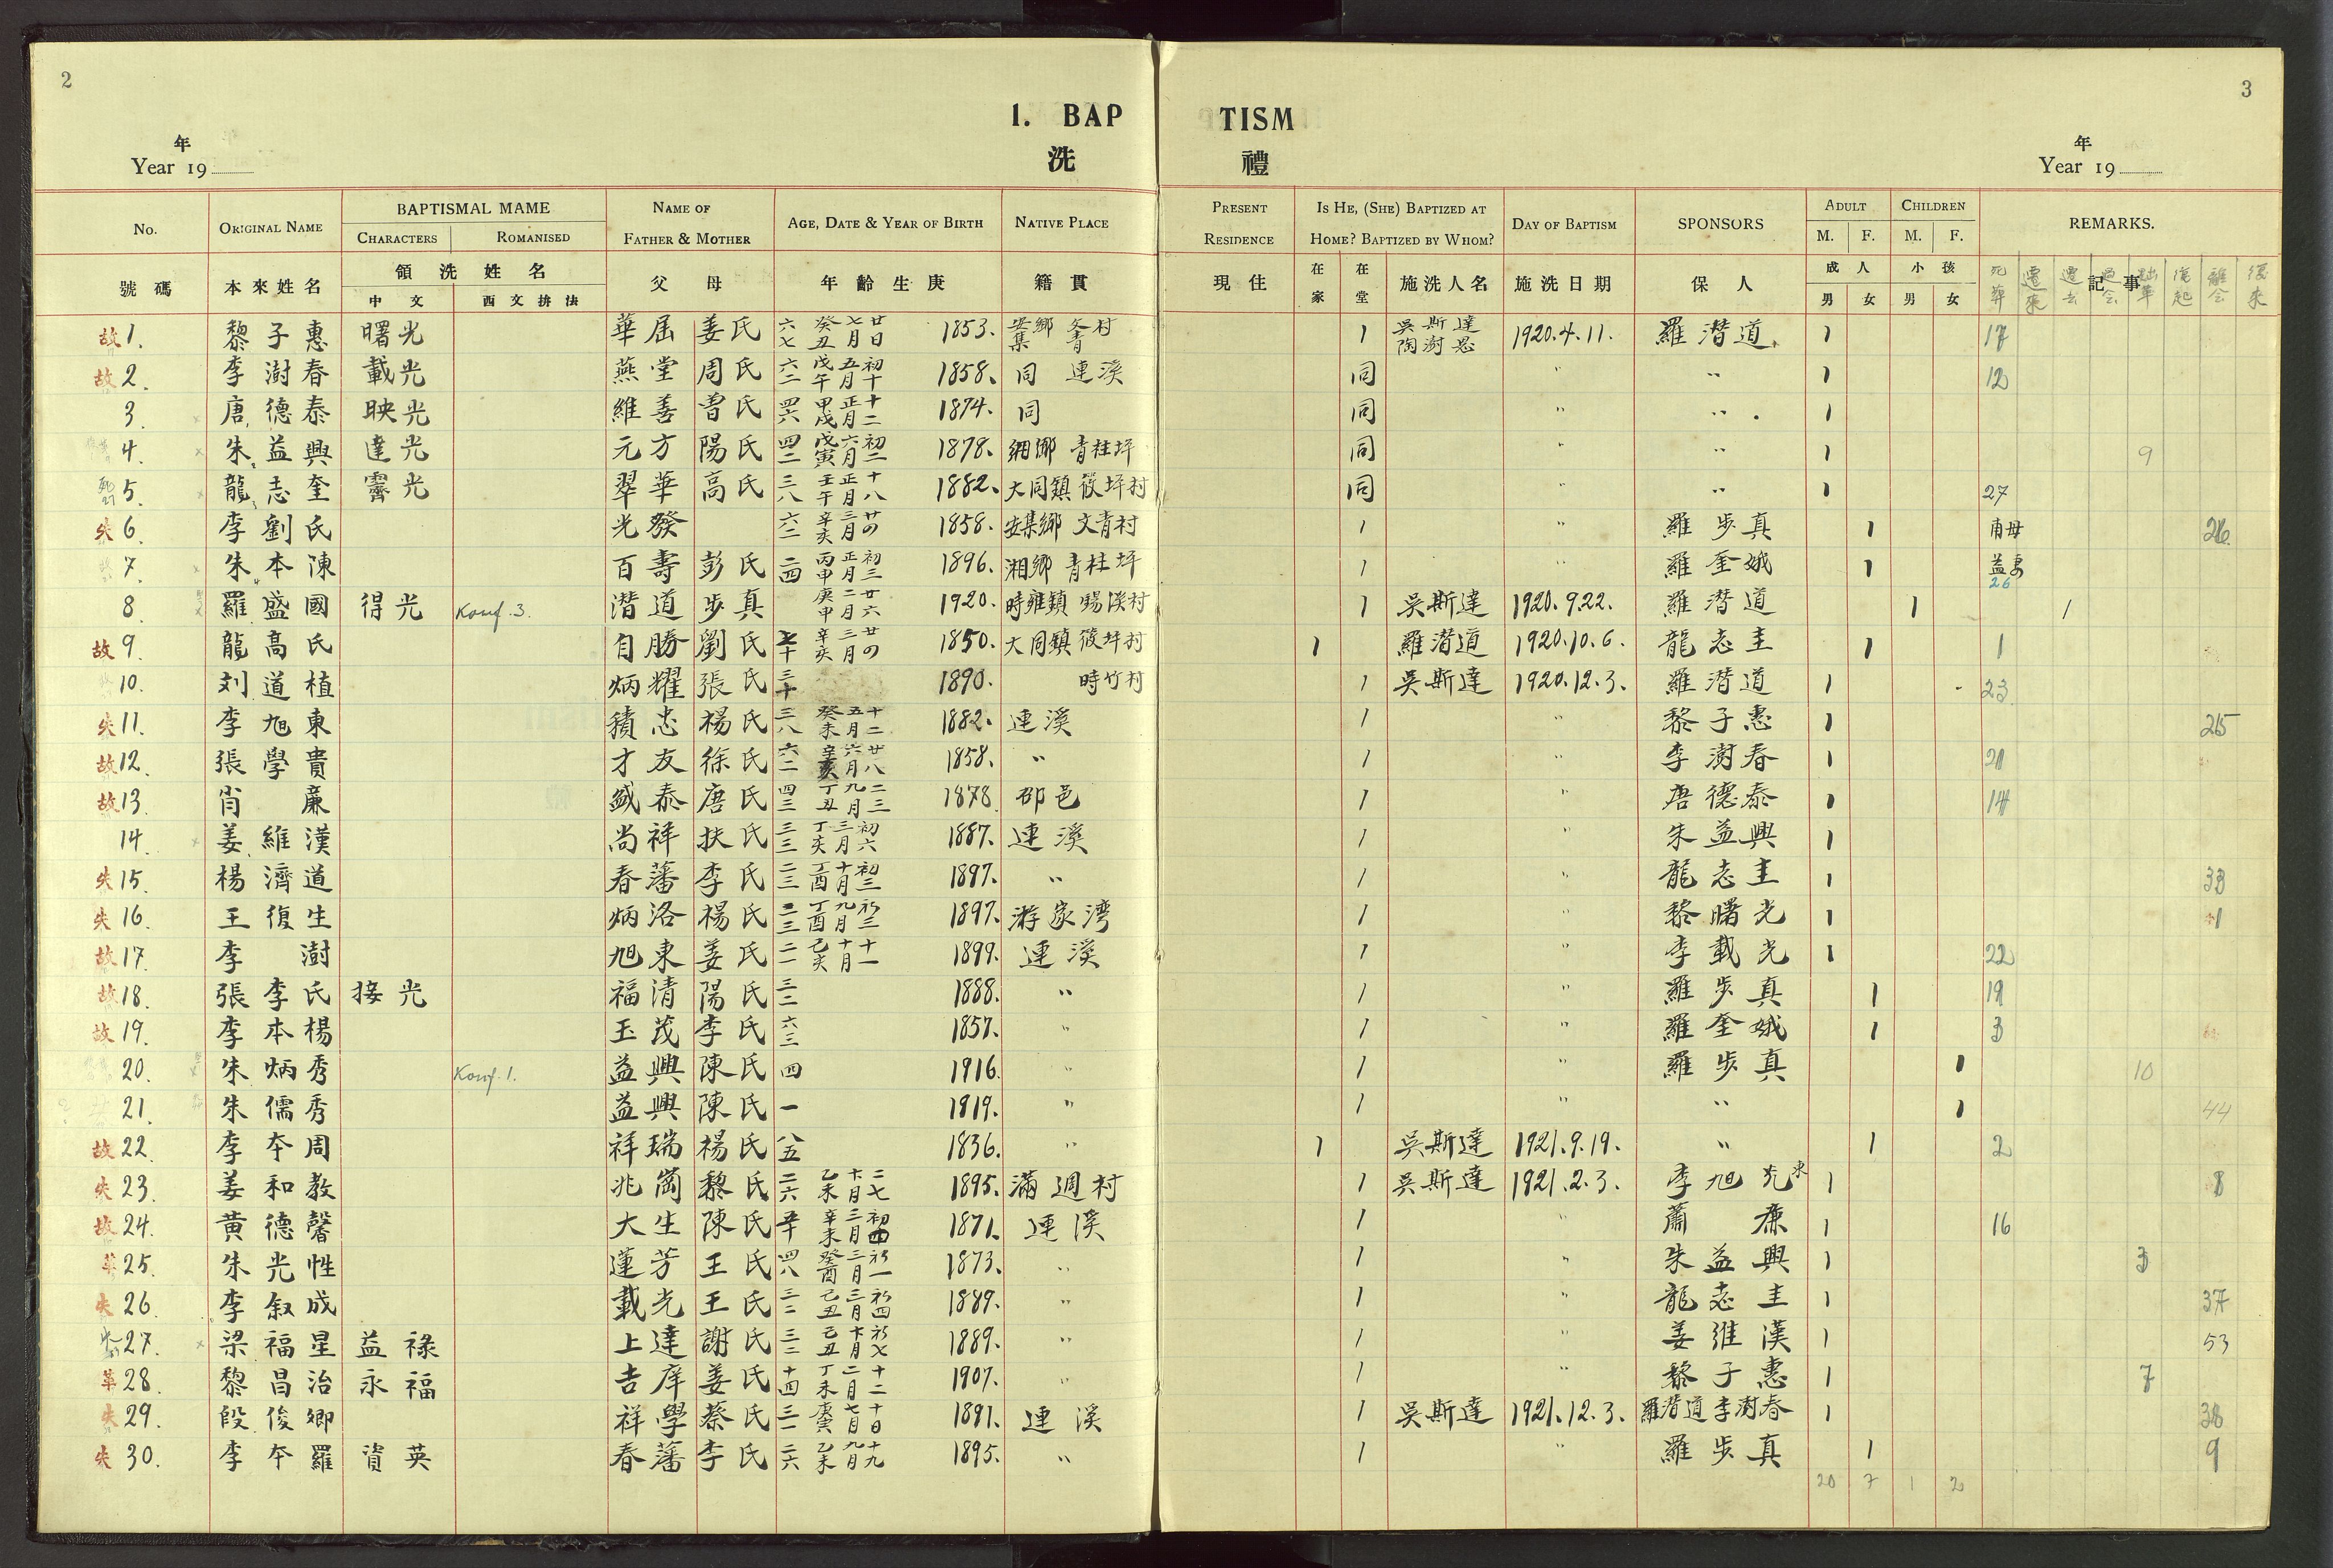 2
3
1. BAP TISM
洗 禮
年
Year 19
年
Year 19
No. ORIGINAL NAME BAPTISMAL MAME NAME OF FATHER & MOTHER AGE, DATE & YEAR OF BIRTH NATIVE PLACE PRESENT RESIDENCE IS HE, (SHE) BAPTIZED AT HOME? BAPTIZED BY WHOM? DAY OF BAPTISM SPONSORS ADULT CHILDREN REMARKS.
CHARACTERS ROMANISED M. F. M. F.
號碼 本來姓名 領洗姓名 父母 年齡生庚 籍貫 現住 在家 在堂 施洗人名 施洗日期 保人 成人 小孩 記事
中文 西文拚法 男 女 男 女
死葬 遷來 遷去 離会
故 1. 黎子惠 曙光 華屈 姜氏 六七 癸丑 七月 廿日 1853. 安集鄉 村 1 吳斯達 陶澍恩 1920.4.11. 羅潛道 1 17
故 2. 李澍春 載光 燕堂 周氏 六二 戊午 五月 初十 1858. 同 連溪 同 " " 1 12
3. 唐德泰 映光 維善 曾氏 四六 甲戌 正月 十二 1874. 同 同 " " 1
4. 朱益興 達光 元方 陽氏 四二 戊寅 六月 初二 1878. 鄉 青桂坪 同 " " 1 9
死 27 5. 龍志奎 霽光 翠華 高氏 三八 壬午 正月 十八 1882. 大同鎮 筱坪村 同 " " 1 27
失 6. 李劉氏 光發 六二 辛亥 三月 廿四 1858. 安集鄉 文青村 1 " 羅步真 1 母 26
7. 朱本陳 百壽 彭氏 二四 丙申 正月 初三 1896. 湘鄉 青桂坪 1 " 羅奎娥 1 益妻 26
8. 羅盛國 得光 Konf. 3. 潛道 步真 庚申 二月 廿六 1920. 時雍鎮 錫溪村 1 吳斯達 1920.9.22. 羅潛道 1 1
故 9. 龍高氏 自勝 劉氏 七十 辛亥 三月 廿四 1850. 大同鎮 筱坪村 1 羅潛道 1920.10.6. 龍志圭 1 1
10. 刘道植 炳耀 張氏 三十 1890. 時竹村 1 吳斯達 1920.12.3. 羅潛道 1 23
失 11. 李旭東 積忠 楊氏 三八 癸未 五月 十二 1882. 連溪 1 " 黎子惠 1 25
故 12. 張學貴 才友 徐氏 六二 辛亥 六月 廿八 1858. " 1 " 李澍春 1 21
故 13. 肖廉 泰 唐氏 四三 丁丑 九月 二三 1878. 邵邑 1 " 唐德泰 1 14
14. 姜維漢 尚祥 扶氏 三三 丁亥 三月 初六 1887. 連溪 1 " 朱益興 1
失 15. 楊濟道 春藩 李氏 二三 丁酉 十月 初三 1897. " 1 " 龍志圭 1 33
失 16. 王復生 炳洛 楊氏 二三 丁酉 九月 初三 1897. 游家湾 1 " 黎曙光 1 1
故 17. 李澍 旭東 姜氏 二一 己亥 十月 十一 1899. 連溪 1 " 李載光 1 22
故 18. 張李氏 接光 福清 陽氏 三二 1888. " 1 " 羅步真 1 19
故 19. 李本楊 玉茂 李氏 六三 1857. " 1 " 羅奎娥 1 3
20. 朱炳秀 Konf. 1. 益興 陳氏 四 1916. " 1 " 羅步真 1 10
21. 朱儒秀 益興 陳氏 一 1919. " 1 " " 1 44
故 22. 李本周 祥瑞 楊氏 八五 1836. " 1 吳斯達 1921.9.19. " 1 2
失 23. 姜和教 兆崗 黎氏 二六 乙未 十月 二七 1895. 滿週村 1 吳斯達 1921.2.3. 李旭光 東 1 8
故 24. 黄德馨 大生 陳氏 五十 辛未 三月 初四 1871. 連溪 1 " 蕭廉 1 16
革 25. 朱光性 蓮芳 王氏 四八 癸酉 三月 初一 1873. " 1 " 朱益興 1 3
失 26. 李叙成 載光 王氏 三二 己丑 三月 初四 1889. " 1 " 龍志圭 1 37
27. 梁福星 益祿 上達 謝氏 三二 己丑 十月 初七 1889. " 1 " 姜維漢 1 53
革 28. 黎昌治 永福 吉庠 姜氏 十四 丁未 二月 十二 1907. " 1 " 黎子惠 1 7
失 29. 段俊卿 祥學 蔡氏 三一 七月 十日 1891. 連溪 1 吳斯達 1921.12.3. 羅潛道 李澍春 1 38
失 30. 李本羅 資英 春藩 李氏 二六 乙未 九月 十九 1895. " 1 " 羅步真 1 9
20 7 1 2